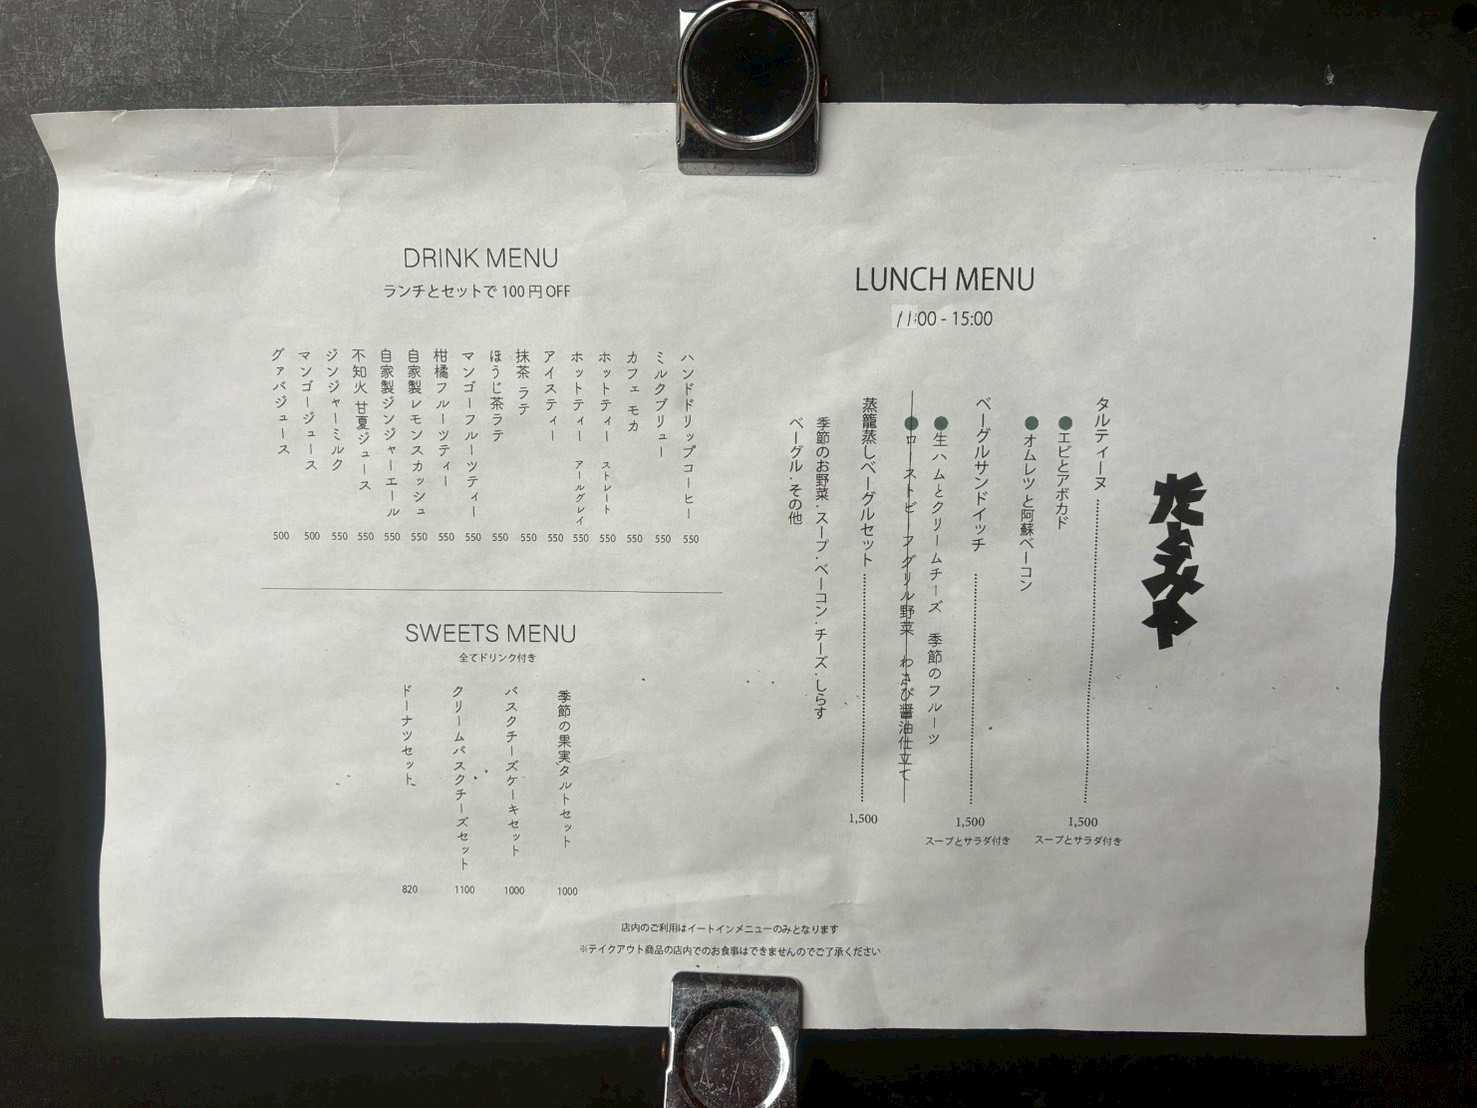 たとみや
LUNCH MENU
11:00 - 15:00
タルティーヌ 1,500
スープとサラダ付き
●エビとアボカド
●オムレツと阿蘇ベーコン
ベーグルサンドイッチ 1,500
スープとサラダ付き
●生ハムとクリームチーズ 季節のフルーツ
●ローストビーフグリル野菜 わさび醤油仕立て
蒸籠蒸しベーグルセット 1,500
季節のお野菜.スープ.ベーコン.チーズ.しらす
ベーグル.その他
DRINK MENU
ランチとセットで 100 円 OFF
ハンドドリップコーヒー 550
ミルクブリュー 550
カフェ モカ 550
ホットティー ストレート 550
ホットティー アールグレイ 550
アイスティー 550
抹茶 ラテ 550
ほうじ茶ラテ 550
マンゴーフルーツティー 550
柑橘フルーツティー 550
自家製レモンスカッシュ 550
自家製ジンジャーエール 550
不知火 甘夏ジュース 550
ジンジャーミルク 550
マンゴージュース 500
グァバジュース 500
SWEETS MENU
全てドリンク付き
季節の果実タルトセット 1000
バスクチーズケーキセット 1000
クリームバスクチーズセット 1100
ドーナツセット 820
店内のご利用はイートインメニューのみとなります
※テイクアウト商品の店内でのお食事はできませんのでご了承ください